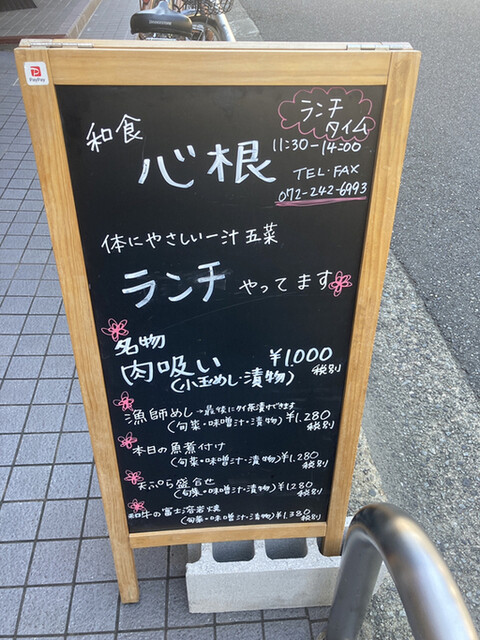 PayPay
和食
心根
ランチ
タイム
11:30-14:00
TEL・FAX
072-242-6993
体にやさしい一汁五菜
ランチ やってます
名物
肉吸い ¥1,000
(小玉めし・漬物) 税別
漁師めし→最後にタイ茶漬けできます
(旬菜・味噌汁・漬物) ¥1,280
税別
本日の魚煮付け
(旬菜・味噌汁・漬物) ¥1,280
税別
天ぷら盛合せ
(旬菜・味噌汁・漬物) ¥1280
税別
和牛の富士溶岩焼
(旬菜・味噌汁・漬物) ¥1,380
税別